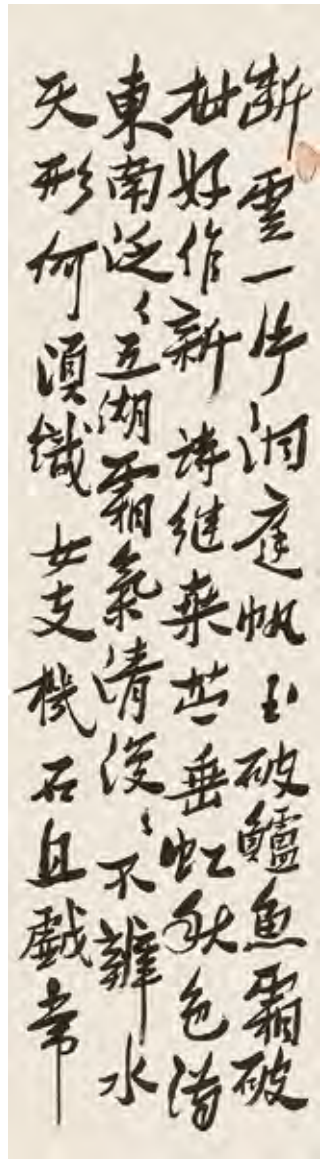 斷雲一片洞庭帆玉破鱸魚霜破
柑好作新詩継桑苎垂虹秋色滿
東南泛〻五湖霜氣清漫〻不辨水
天形何須織女支機石且戲常